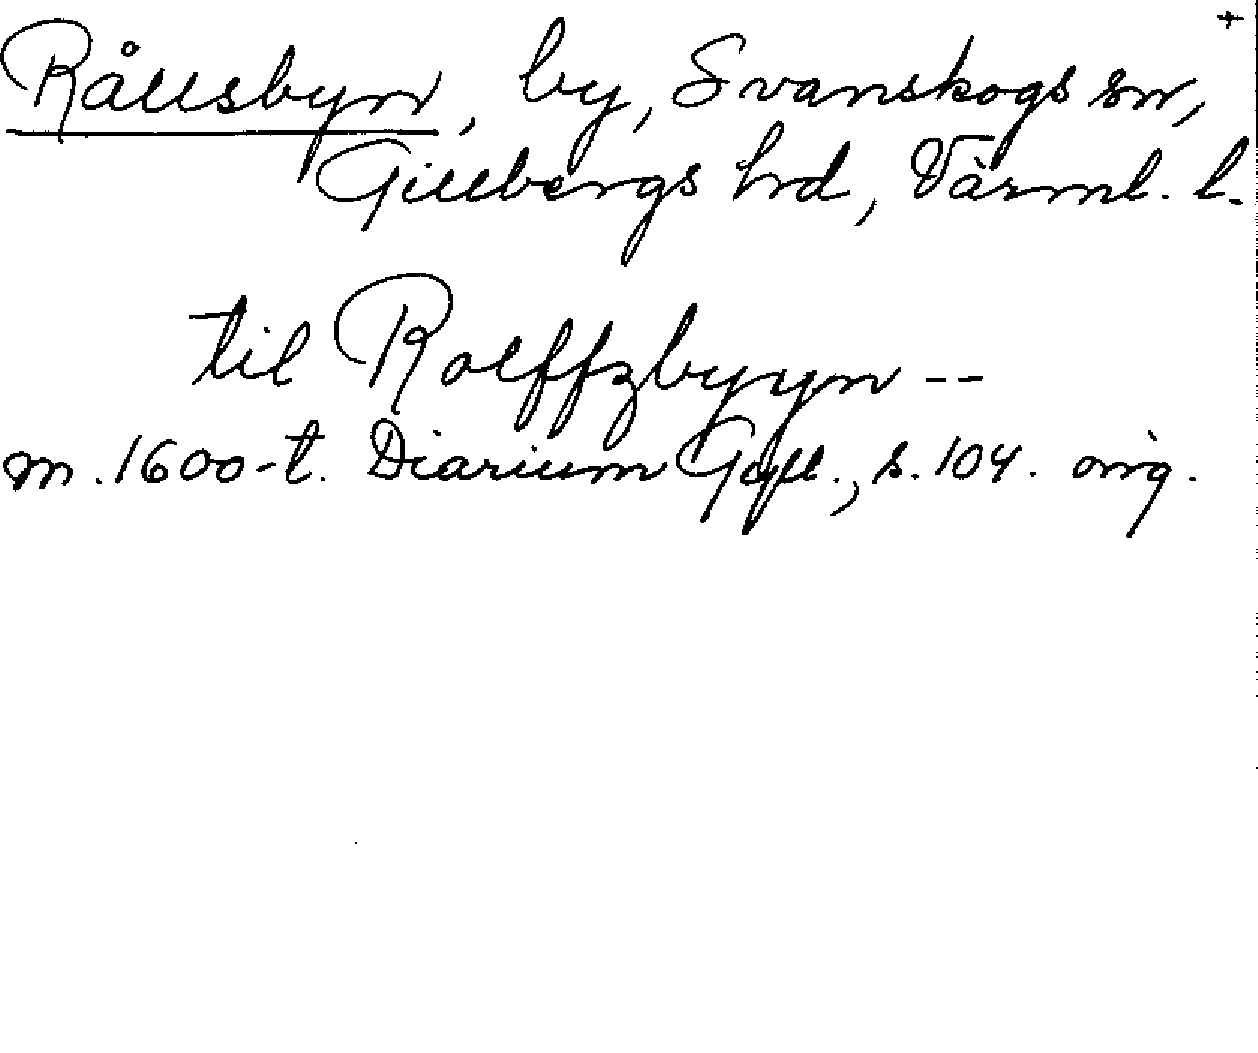 +
Rållsbyn, by, Svanskogs sn,
Gillbergs hrd, Värml. l.
til Rolffzbyyn --
m. 1600-t. Diarium Gyll., s. 104. orig.